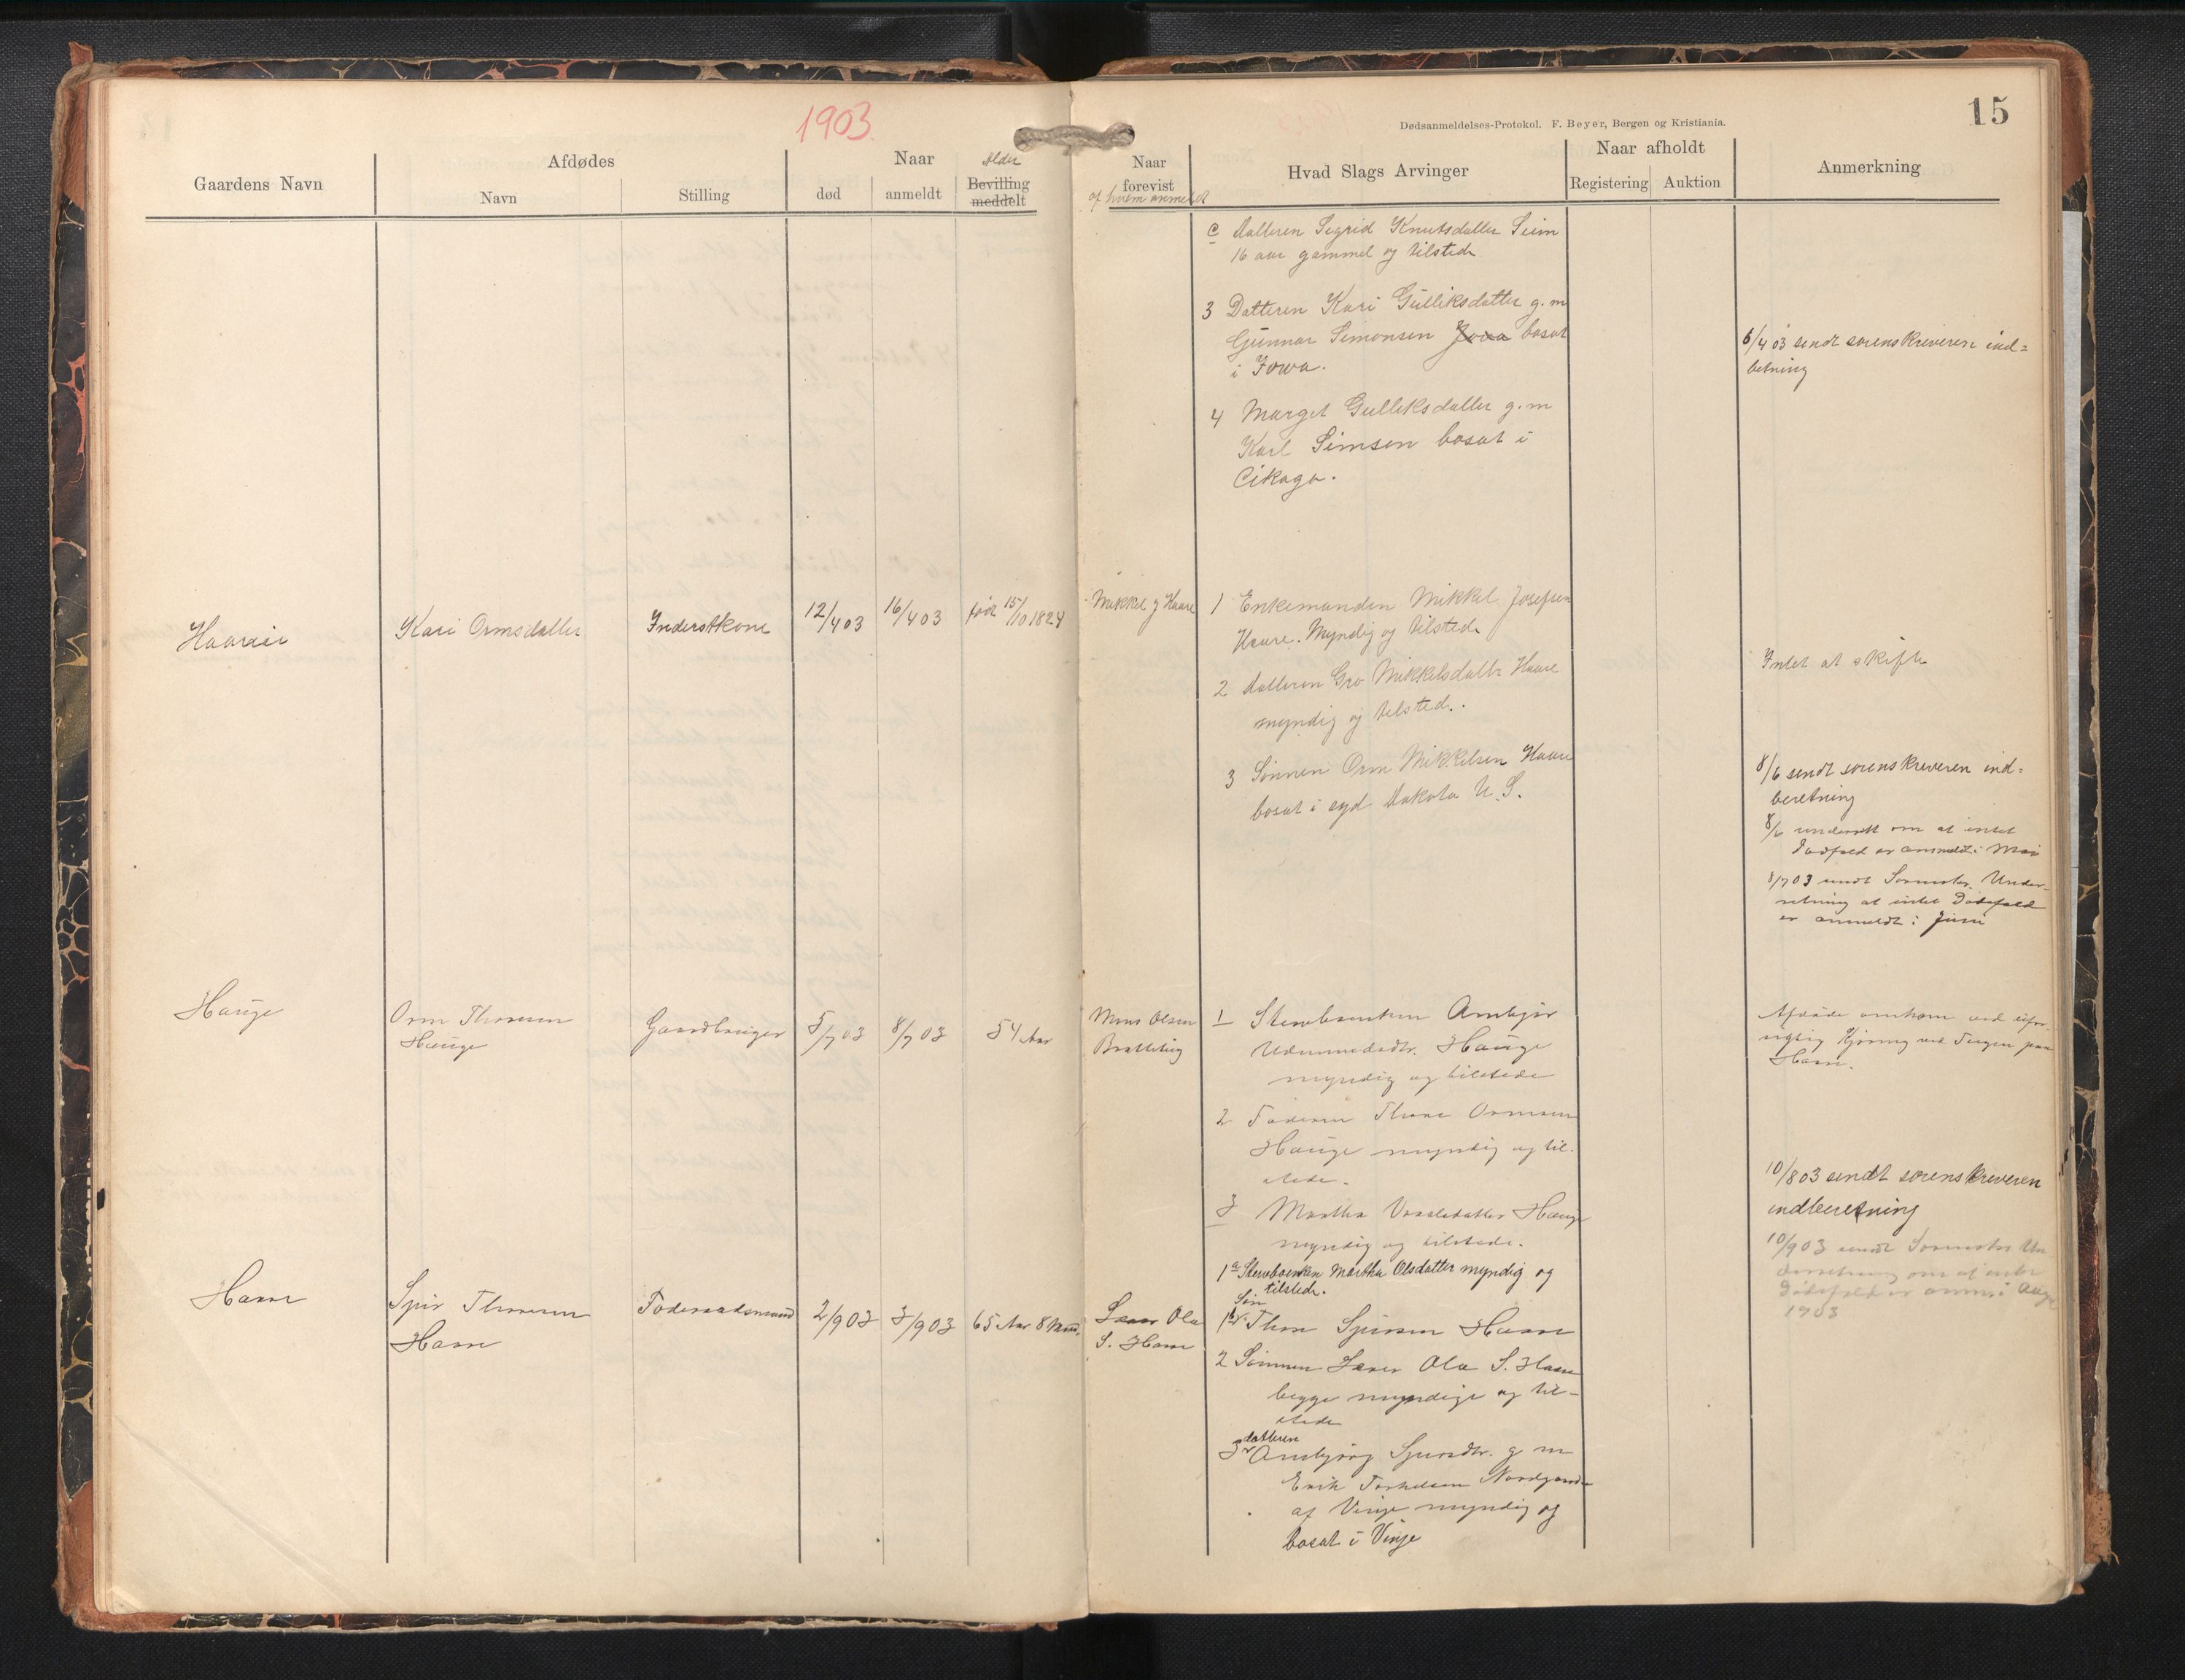 1903.
15
Dødsanmeldelses-Protokol. F. Beyer, Bergen og Kristiania.
Gaardens Navn
Afdødes
Navn
Stilling
Naar
død
anmeldt
Alder
Bevilling
meddelt
Naar
forevist
af hvem anmeldt
Hvad Slags Arvinger
Naar afholdt
Registering
Auktion
Anmerkning
c Datteren Sigrid Knutsdatter Seim
16 aar gammel og tilstede
3 Datteren Kari Gulliksdatter g.m
Gunnar Simonsen Jova bosat
i Jowa.
6/4 03 sendt sorenskriveren ind=
betning
4 Marget Gulliksdatter g.m
Karl Simsen bosat i
Cikago.
Haaræi
Kari Ormsdatter
Inderstkone
12/4 03
16/4 03
født 15/10 1824
Mikkel J Haare
1 Enkemanden Mikkel Josefsen
Haare. Myndig og tilstede
2 datteren Gro Mikkelsdattr Haare
myndig og tilsted..
3 Sønnen Orm Mikkelsen Haare
bosat i syd Dakota U.S.
Intet at skifte
8/6 sendt sorenskriveren ind=
beretning
8/6 underrett om at intet
Dødsfald er anmeldt i Mai
8/7 03 sendt Sorenskr. Under-
retning at intet Dødsfald
er anmeldt i Juni
Hauge
Orm Thoresen
Hauge
Gaardbruger
5/7 03
8/7 03
54 Aar
Mons Olsen
1 Stervboenken Ambjør
Hauge
myndig og tilstede
2 Faderen Thore Ormsen
Hauge myndig og til-
stede.
3 Martha Hauge
myndig og tilstede.
Afdøde omkom ved ufor-
sigtig Kjøring ved Tingen paa
Ham.
10/8 03 sendt sorenskriveren
indberetning
10/9 03 sendt Sorenskr. Un
derretning om at intet
Dødsfald er anm. i Aug.
1903
Ham
Spir Thoresen
Ham
Føderaadsmand
2/9 03
3/9 03
65 Aar 8 Mnd.
Ola
S. Ham
1a Stervboenken Martha Olsdatter myndig og
tilstede.
Søn
1b Thore Spirsen Ham
2 Sønnen Ola S. Ham
begge myndige og til-
stede
datteren
3 Ambjørg Spirsdtr. g m
Erik Torkelsen
af Vinje myndig og
bosat i Vinje